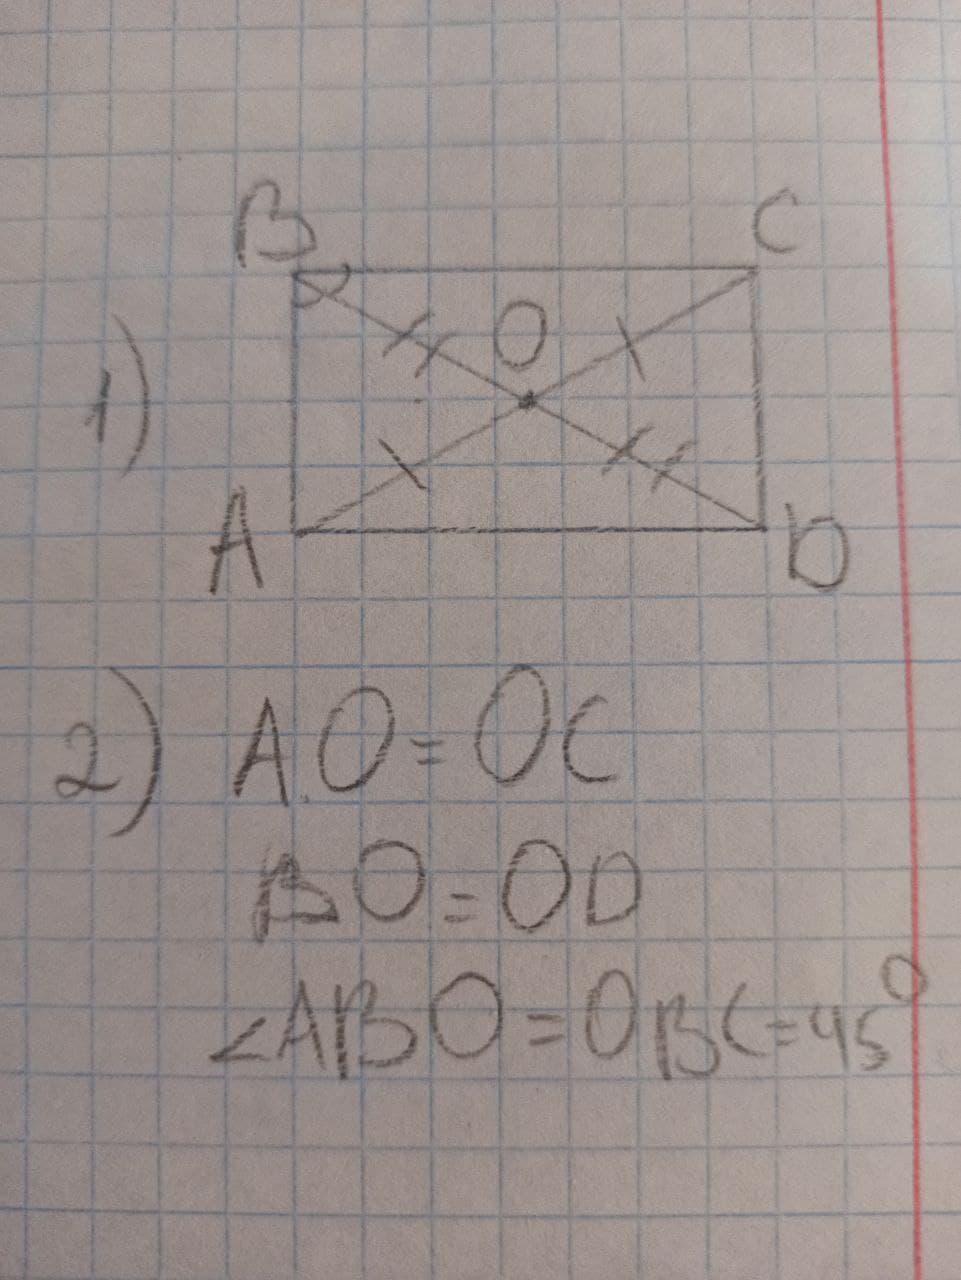 B C
O
1)
A D
2) AO=OC
BO=OD
∠ABO=OBC=45°